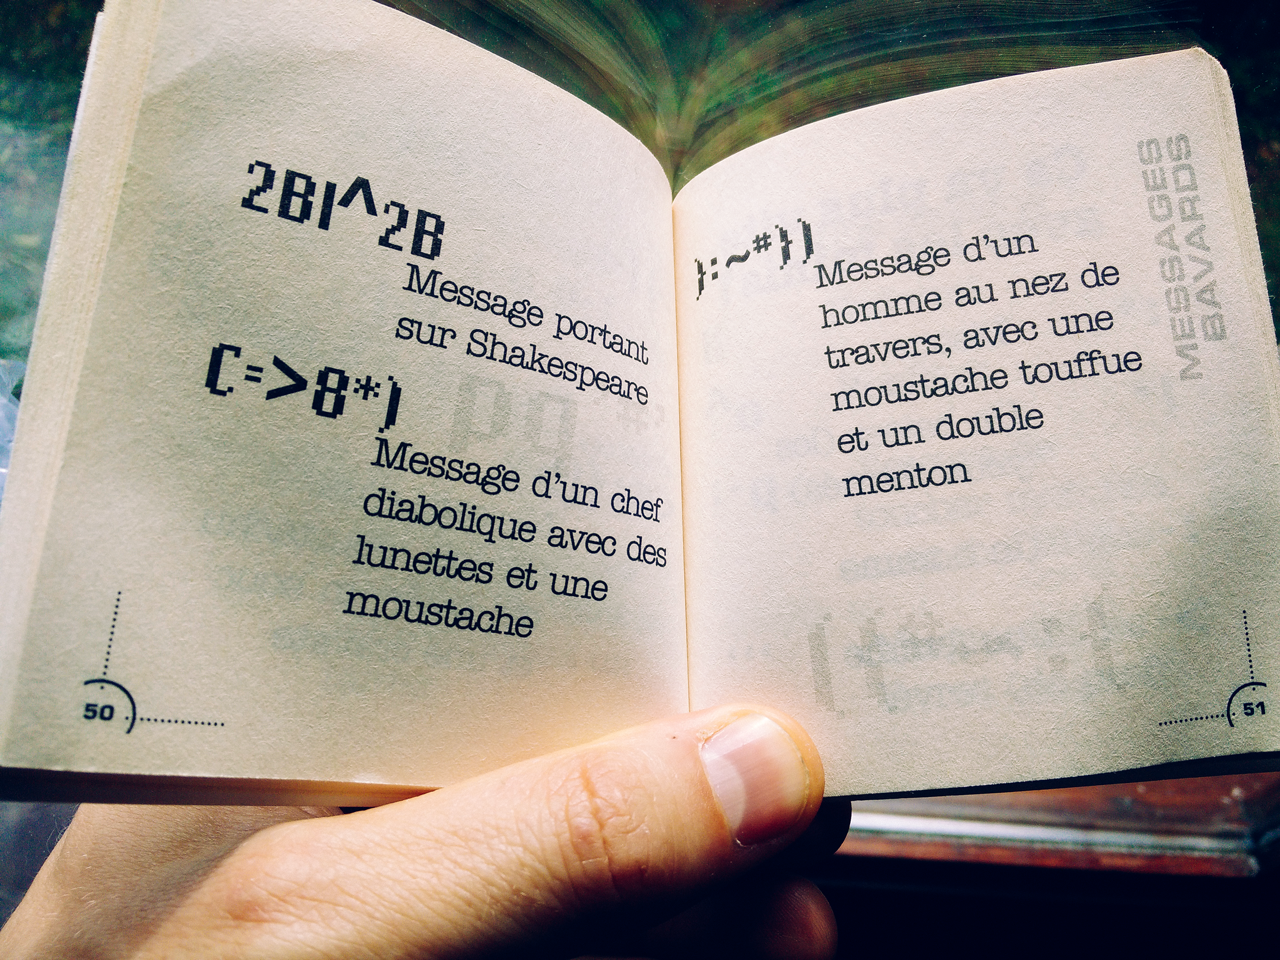 2B|^2B
Message portant
sur Shakespeare
[=>8*)
Message d'un chef
diabolique avec des
lunettes et une
moustache
50
}:~*})
Message d'un
homme au nez de
travers, avec une
moustache touffue
et un double
menton
MESSAGES
BAVARDS
51